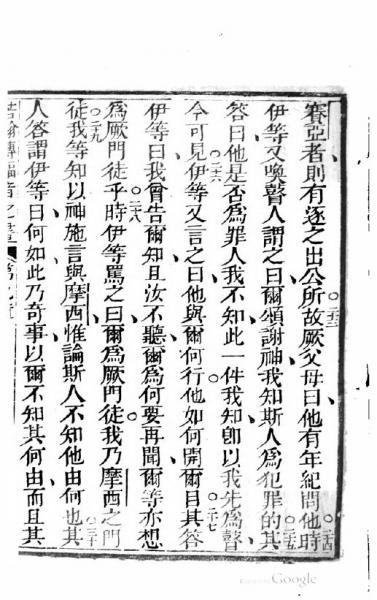 賽亞者則有逐之出公所故厥父母曰他有年紀問他時
伊等又喚瞽人謂之曰爾頌謝神我知斯人為犯罪的其
答曰他是否為罪人我不知此一件我知即以我先為瞽
今可見伊等又言之曰他與爾何行他如何開爾目其答
伊等曰我曾告爾知且汝不聽爾為何要再聞爾等亦想
為厥門徒乎時伊等罵之曰爾為厥門徒我乃摩西之門
徒我等知以神施言與摩西惟論斯人不知他由何也其
人答謂伊等曰何如此乃奇事以爾不知其何由而且其
Google